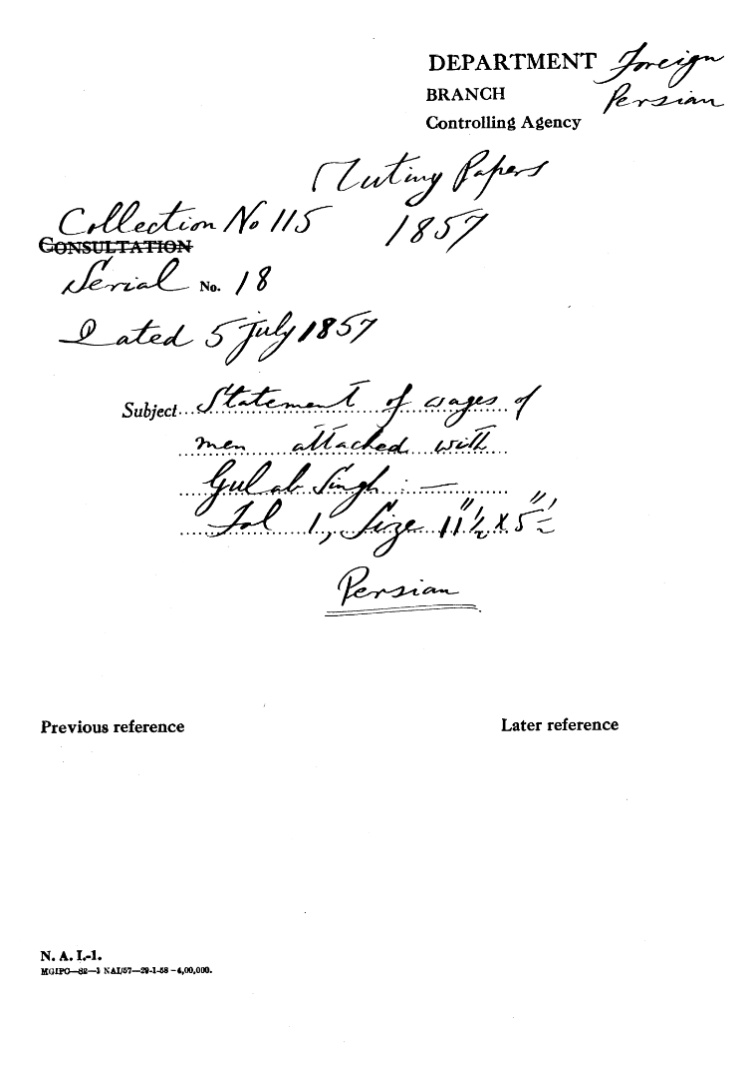 DEPARTMENT Foreign
BRANCH Persian
Controlling Agency
Mutiny Papers
Collection No 115 1857
CONSULTATION
Serial No. 18
Dated 5 July 1857
Subject... Statement of wages of
men attached with
Gulab Singh : —
Fol 1, Size 11"½ X 5"½
Persian
Previous reference Later reference
N. A. I.-1.
MGIPC—82—1 NAI/57—29-1-58—4,00,000.